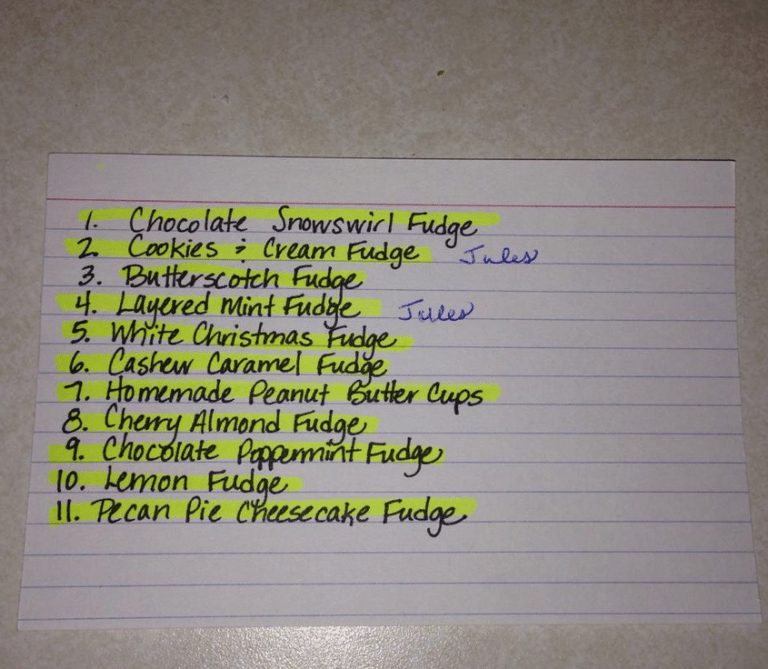 1. Chocolate Snowswirl Fudge
2. Cookies & Cream Fudge Jules
3. Butterscotch Fudge
4. Layered Mint Fudge Jules
5. White Christmas Fudge
6. Cashew Caramel Fudge
7. Homemade Peanut Butter Cups
8. Cherry Almond Fudge
9. Chocolate Poppermint Fudge
10. Lemon Fudge
11. Pecan Pie Cheesecake Fudge